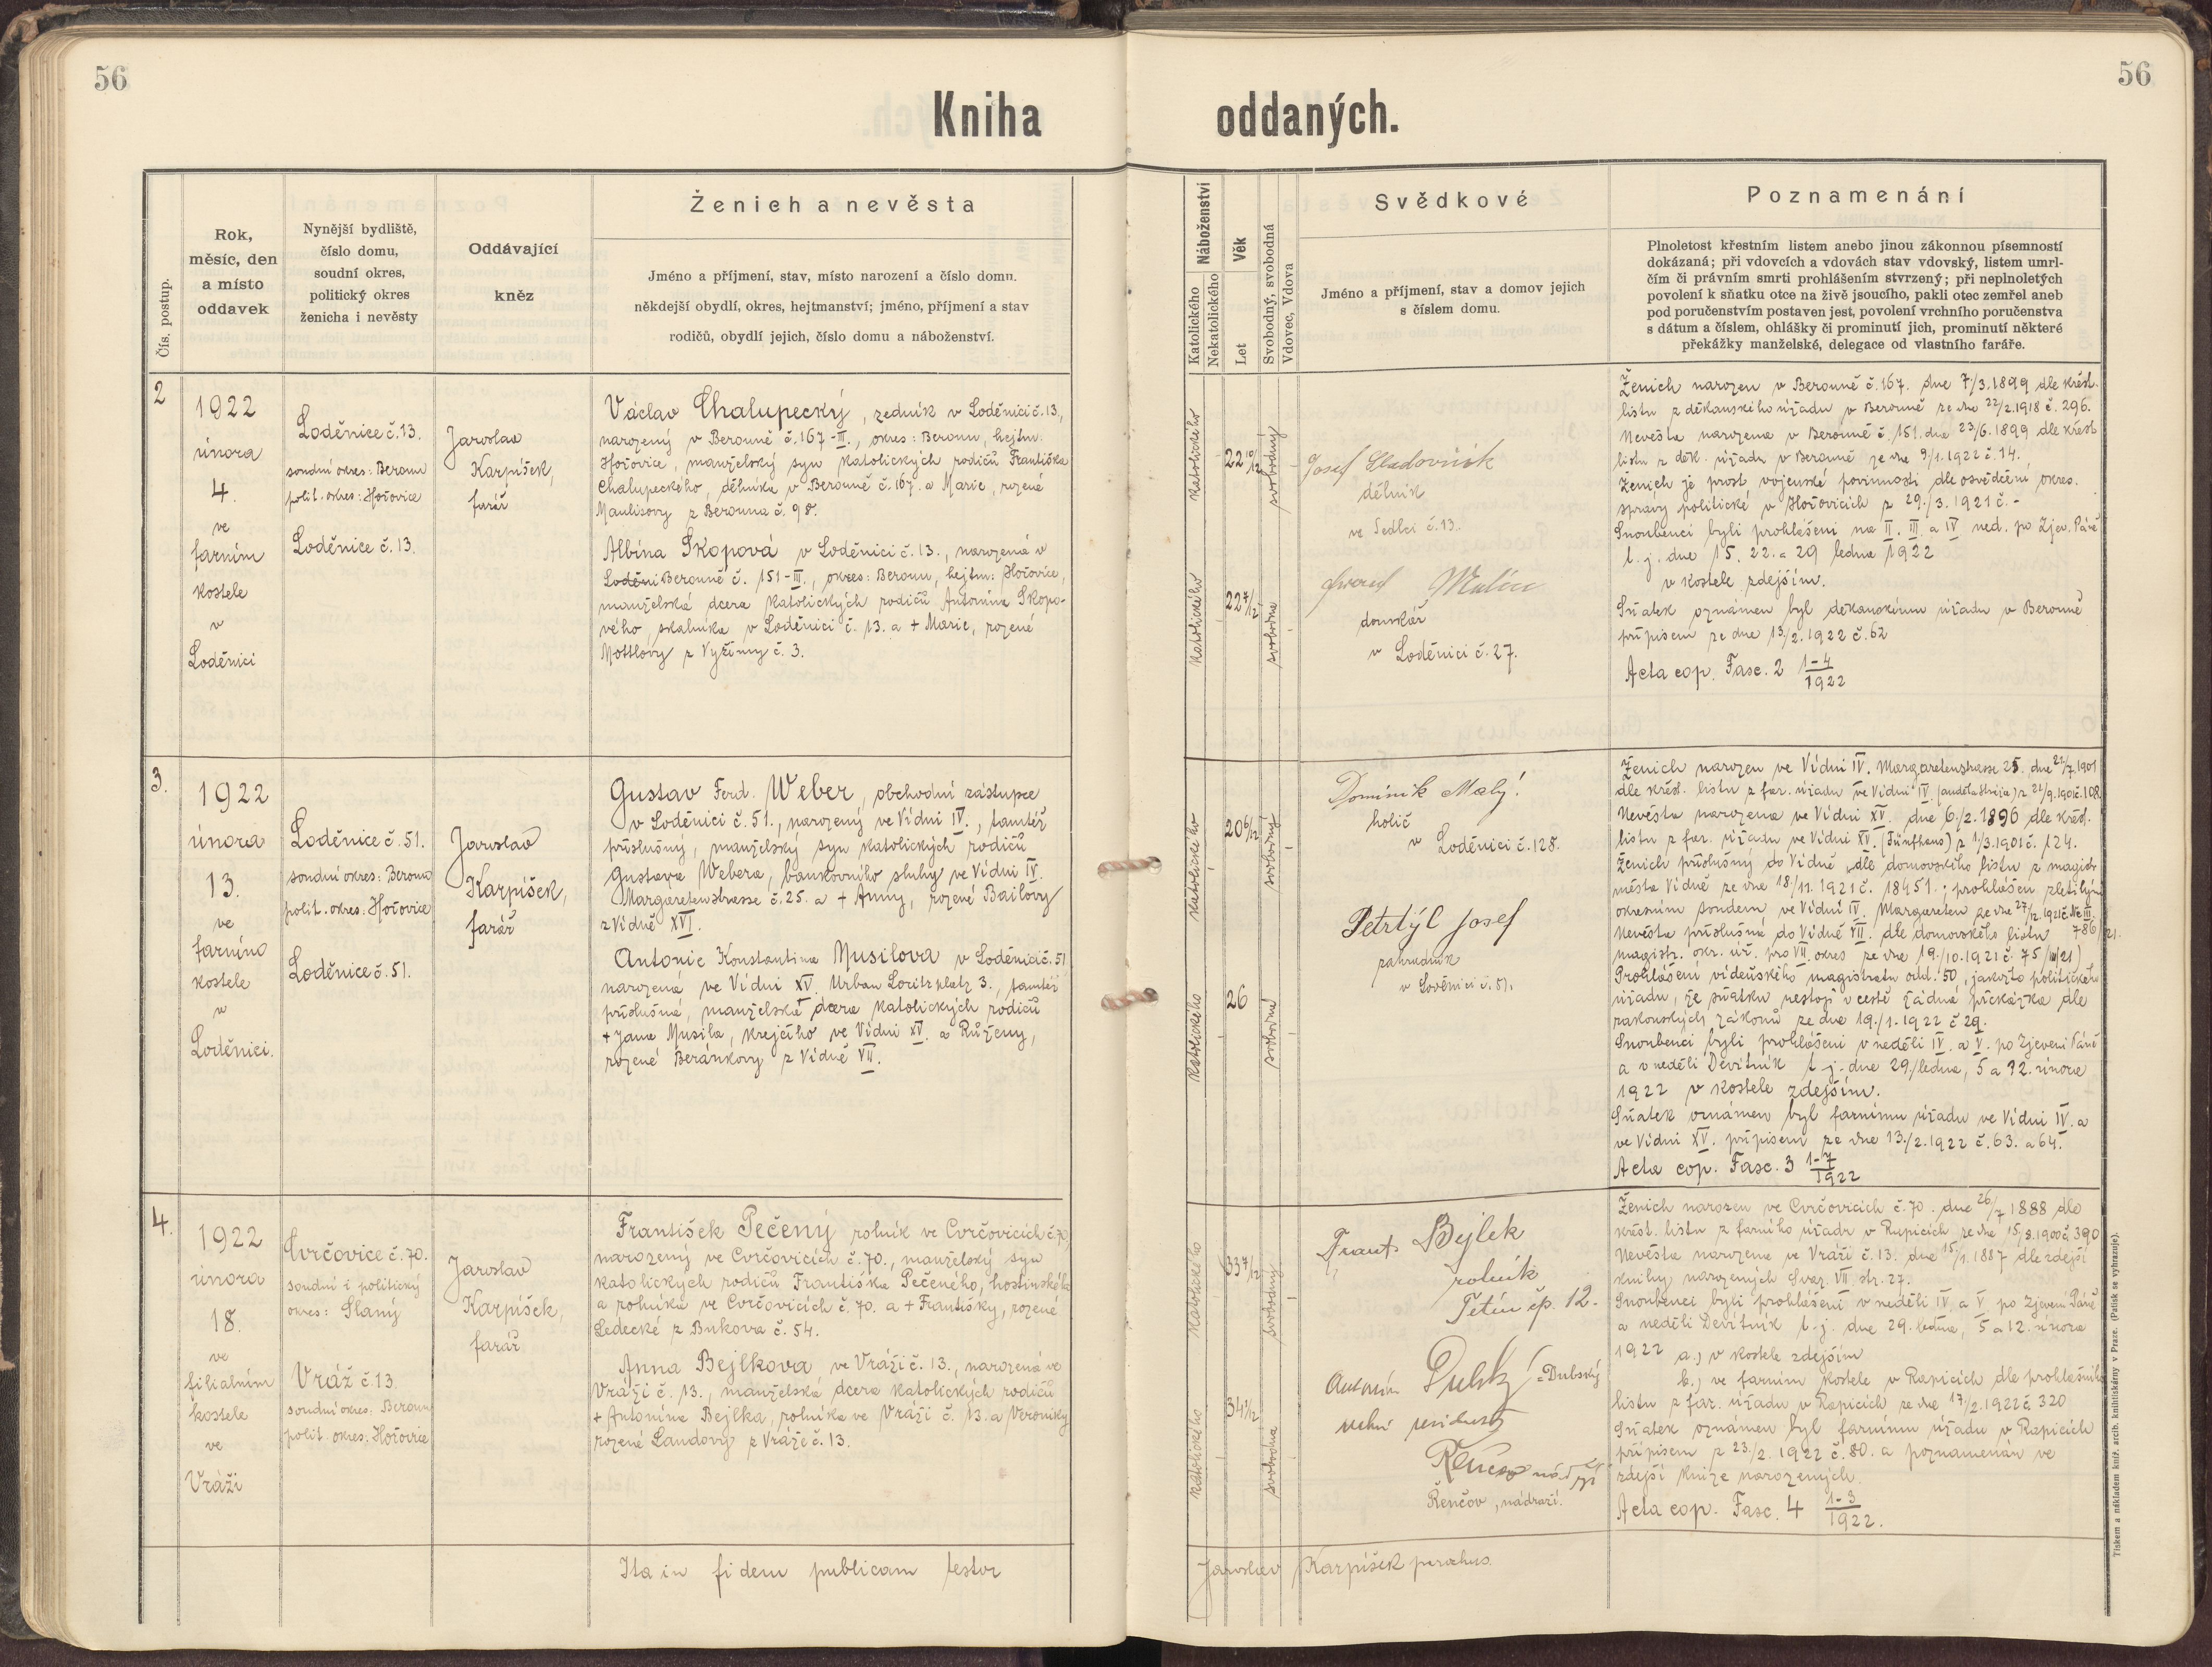 56
56
Kniha oddaných.
Čís. postup.
Rok,
měsíc, den
a místo
oddavek
Nynější bydliště,
číslo domu,
soudní okres,
politický okres
ženicha i nevěsty
Oddávající
kněz
Ženich a nevěsta
Jméno a příjmení, stav, místo narození a číslo domu.
někdejší obydlí, okres, hejtmanství; jméno, příjmení a stav
rodičů, obydlí jejich, číslo domu a náboženství.
Náboženství
Katolického
Nekatolického
Věk
Let
Svobodný, svobodná
Vdovec, Vdova
Svědkové
Jméno a příjmení, stav a domov jejich
s číslem domu.
Poznamenání
Plnoletost křestním listem anebo jinou zákonnou písemností
dokázaná; při vdovcích a vdovách stav vdovský, listem umrl-
čím či právním smrti prohlášením stvrzený; při neplnoletých
povolení k sňatku otce na živě jsoucího, pakli otec zemřel aneb
pod poručenstvím postaven jest, povolení vrchního poručenstva
s dátum a číslem, ohlášky či prominutí jich, prominutí některé
překážky manželské, delegace od vlastního faráře.
2
1922
února
4.
ve
farním
kostele
v
Loděnici
Loděnice č. 13.
soudní okres: Beroun
polit. okres: Hořovice
Loděnice č. 13.
Jaroslav
Karpíšek,
farář
Václav Chalupecký, zedník v Loděnici č. 13,
narozený v Berouně č. 167-III., okres: Beroun, hejtm:
Hořovice, manželský syn katolických rodičů Františka
Chalupeckého, dělníka v Berouně č. 167. a Marie, rozené
z Berouna č. 98.
Albína Skopová v Loděnici č. 13., narozená v
Loděni Berouně č. 151-III., okres: Beroun, hejtm: Hořovice,
manželská dcera katolických rodičů Antonína Skopo-
vého, skalníka v Loděnici č. 13. a + Marie, rozené
Mottlovy z č. 3.
katolického
22 10/12
svobodný
katolického
22 7/12
svobodna
Josef Sladovník
dělník
ve Sedlci č. 13.
Malec
domkář
v Loděnici č. 27.
Ženich narozen v Berouně č. 167. dne 7/3. 1899 dle křest.
listu z děkanského úřadu v Berouně ze dne 22/2. 1918 č. 296.
Nevěsta narozena v Berouně č. 151. dne 23/6. 1899 dle křest
listu z děk. úřadu v Berouně ze dne 9/1. 1922 č. 14.
Ženich je prost vojenské povinnosti dle osvědčení okres.
správy politické v Hořovicích z 29./3. 1921 č. -
Snoubenci byli prohlášeni na II. III. a IV ned. po Zjev. Páně
t. j. dne 15. 22. a 29 ledna 1922
v kostele zdejším.
Sňatek oznámen byl děkanskému úřadu v Berouně
přípisem ze dne 13./2. 1922 č. 62
Acta cop. Fasc. 2 1-4/1922
3.
1922
února
13.
ve
farním
kostele
v
Loděnici.
Loděnice č. 51.
soudní okres: Beroun
polit. okres: Hořovice
Loděnice č. 51.
Jaroslav
Karpíšek,
farář
Gustav Ferd. Weber, obchodní zástupce
v Loděnici č. 51., narozený ve Vídni IV., tamtéž
příslušný, manželský syn katolických rodičů
Gustava Webera, bankovního sluhy ve Vídni IV.
Margaretenstrasse č. 25. a + Anny, rozené Bailovy
z Vídně XVI.
Antonie Konstantina Musilova v Loděnici č. 51
narozená ve Vídni XV. Urban Loritz platz 3., tamtéž
příslušná, manželská dcera katolických rodičů
+ Jana Musila, krejčího ve Vídni XV. a Růženy,
rozené Beránkovy z Vídně VII.
katolického
20 6/12
svobodný
katolického
26
svobodna
Dominik Malý.
holič
v Loděnici č. 128.
Petrtýl Josef
zahradník
v Loděnici č. 51.
Ženich narozen ve Vídni IV. Margaretenstrasse 25. dne 22/7. 1901
dle křest. listu z far. úřadu ve Vídni IV. z 22/9. 1901 č. 108.
Nevěsta narozena ve Vídni XV. dne 6./2. 1896 dle křest.
listu z far. úřadu ve Vídni XV. (Fünfhaus) z 1/3. 1901 č. 124.
Ženich příslušný do Vídně dle domovského listu z magistr
města Vídně ze dne 18/11. 1921 č. 18451.; prohlášen zletilým
okresním soudem ve Vídni IV. Margareten ze dne 27/12. 1921 č. Nc III.
Nevěsta příslušna do Vídně VII. dle domovského listu 786/21.
magistr. okr. úř. pro VII. okres ze dne 19./10. 1921 č. 75/III/21)
Prohlášení vídeňského magistratu odd. 50, jakožto politického
úřadu, že sňatku nestojí v cestě žádná překážka dle
rakouských zákonů ze dne 19./1. 1922 č 29.
Snoubenci byli prohlášeni v neděli IV. a V. po Zjevení Páně
a v neděli Devítník t. j. dne 29./ledna, 5 a 12. února
1922 v kostele zdejším.
Sňatek oznámen byl farnímu úřadu ve Vídni IV. a
ve Vídni XV. přípisem ze dne 13./2. 1922 č. 63. a 64.
Acta cop. Fasc. 3 1-7/1922
4.
1922
února
18.
ve
filialním
kostele
ve
Vráži
Cvrčovice č. 70.
soudní i politický
okres: Slaný
Vráž č. 13.
soudní okres: Beroun
polit. okres: Hořovice
Jaroslav
Karpíšek,
farář
František Pečený rolník ve Cvrčovicích č. 70,
narozený ve Cvrčovicích č. 70., manželský syn
katolických rodičů Františka Pečeného, hostinského
a rolníka ve Cvrčovicích č. 70. a + Františky, rozené
Ledecké z Bukova č. 54.
Anna Bejlkova ve Vráži č. 13., narozená ve
Vráži č. 13., manželská dcera katolických rodičů
+ Antonína Bejlka, rolníka ve Vráži č. 13. a Veroniky
rozené Landovy z Vráže č. 13.
katolického
33 7/12
svobodný
katolického
34 1/12
svobodna
Frant. Bejlek
rolník
Tetín čp. 12.
Antonín Dubský = Dubský
Řenčov
Řenčov, nádraží.
Ženich narozen ve Cvrčovicích č. 70. dne 26/7 1888 dle
křest. listu z farního úřadu v Rapicích ze dne 15/8. 1900 č. 390
Nevěsta narozena ve Vráži č. 13. dne 15/1. 1887 dle zdejší
knihy narozených Svaz. VII str. 27.
Snoubenci byli prohlášeni v neděli IV. a V. po Zjevení Páně
a neděli Devítník t. j. dne 29. ledna, 5 a 12. února
1922 a.) v kostele zdejším
b.) ve farním kostele v Rapicích dle prohlašního
listu z far. úřadu v Rapicích ze dne 17/2. 1922 č 320
Sňatek oznámen byl farnímu úřadu v Rapicích
přípisem z 23./2. 1922 č. 80. a poznamenán ve
zdejší knize narozených.
Acta cop. Fasc. 4 1-3/1922.
Ita in fidem publicam testor
Jaroslav Karpíšek parochus.
Tiskem a nákladem kníž. arcib. knihtiskárny v Praze. (Patisk se vyhrazuje).